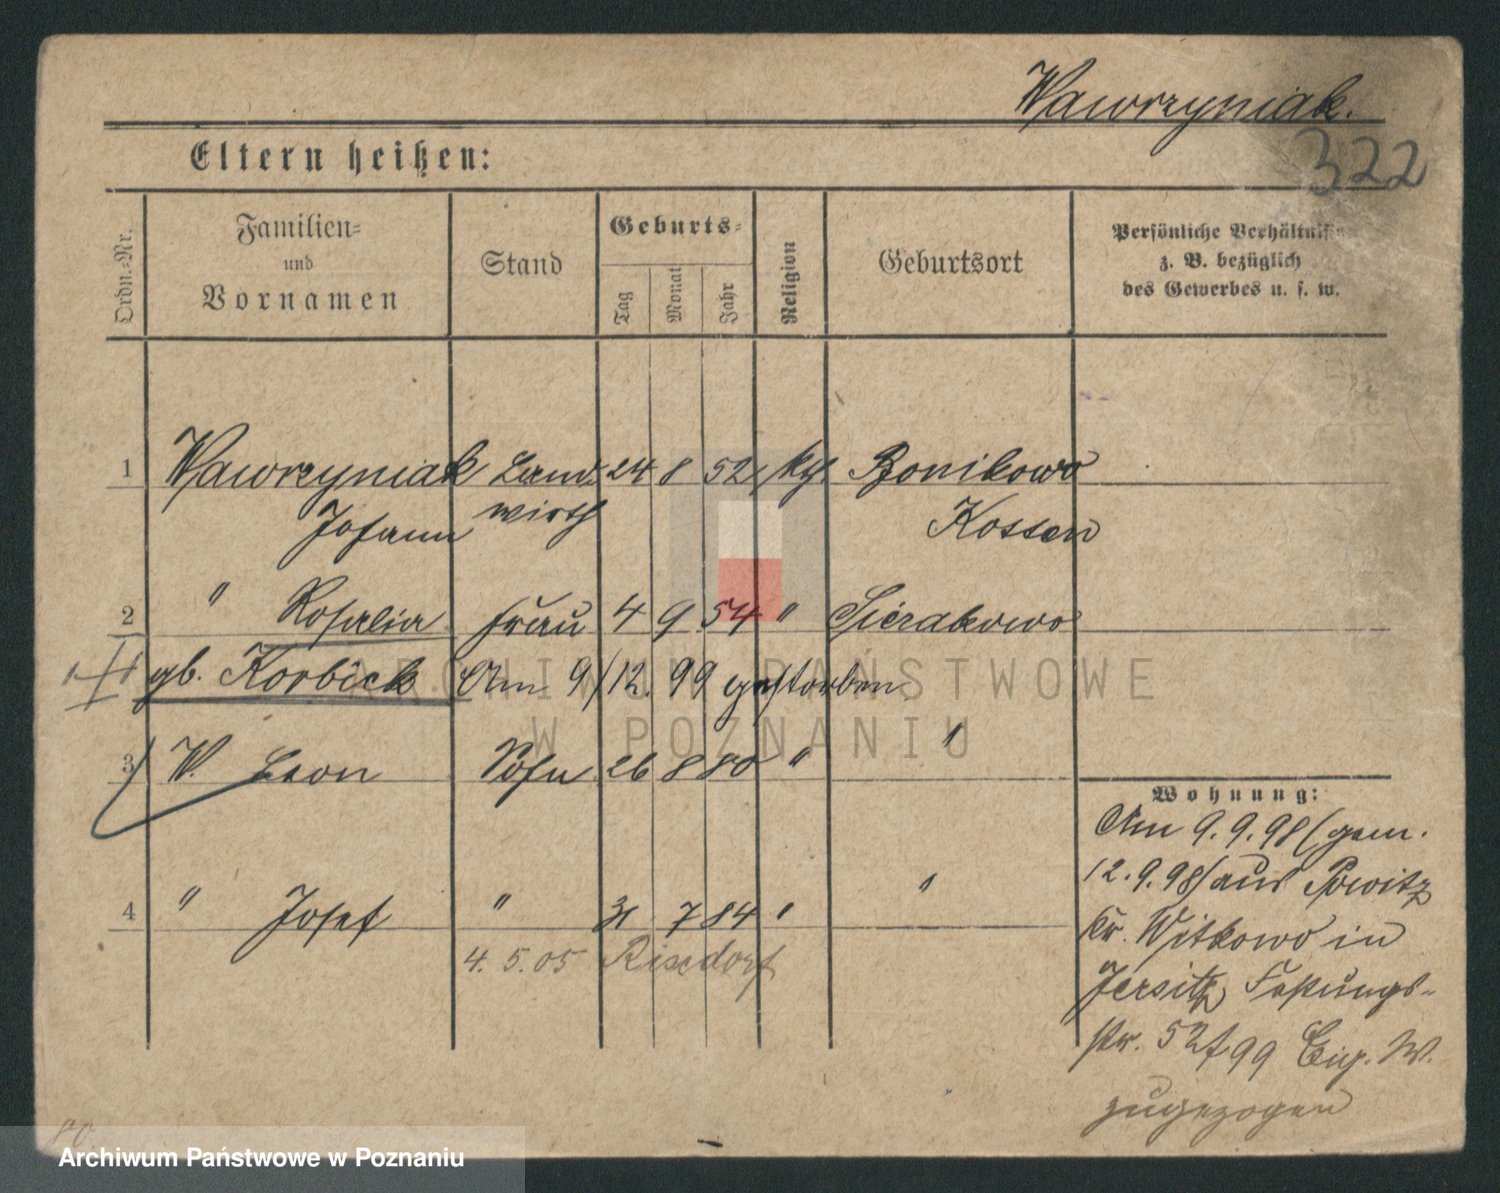 Wawrzyniak.
322
Eltern heißen:
Ordn.-Nr.
Familien-
und
Vornamen
Stand
Geburts-
Tag
Monat
Jahr
Religion
Geburtsort
Persönliche Verhältnisse
z. B. bezüglich
des Gewerbes u. s. w.
1 Wawrzyniak Land- 24 8 52 kth. Bonikowo
Johann wirth Kosten
2 " Rosalia Frau 4 9 54 " Sierakowo
gb. Korbick Am 9/12. 99 gestorben
3 W. Leon Sohn 26 8 80 " "
4 " Josef " 31 7 84 " "
4. 5. 05 Rixdorf
Wohnung:
Am 9. 9. 98 (gem.
12. 9. 98) aus Powitz
Kr. Witkowo in
Jersitz
str. 52 f 99 W.
zugezogen
ARCHIWUM PAŃSTWOWE
W POZNANIU
Archiwum Państwowe w Poznaniu